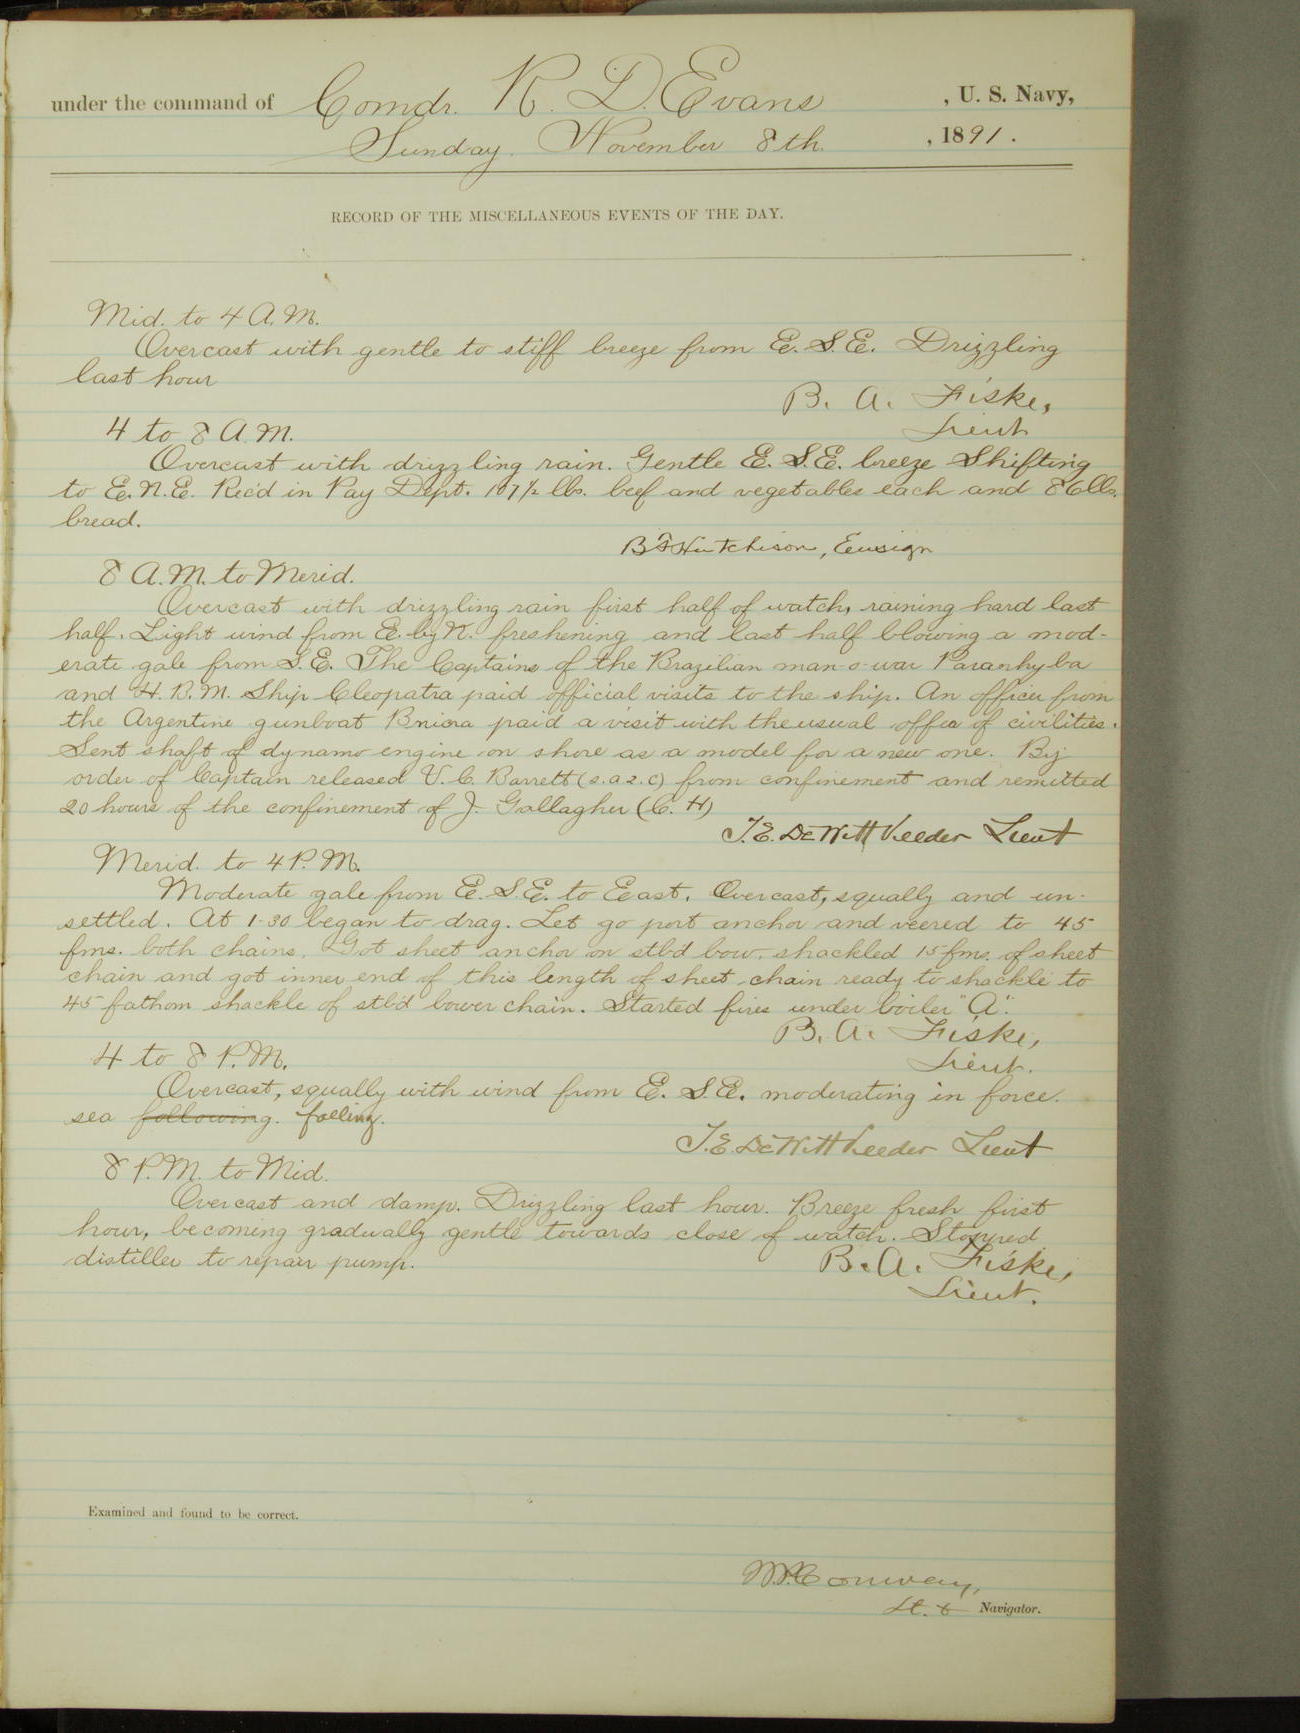 under the command of Comdr. R. D. Evans , U. S. Navy,
Sunday. November 8th. , 1891.
RECORD OF THE MISCELLANEOUS EVENTS OF THE DAY.
Mid. to 4 A.M.
Overcast with gentle to stiff breeze from E.S.E. Drizzling
last hour
B. A. Fiske,
Lieut
4 to 8 A.M.
Overcast with drizzling rain. Gentle E. S.E. breeze Shifting
to E.N.E. Rec'd in Pay Dept. 107½ lbs. beef and vegetables each and 86 lbs.
bread.
Hutchison, Ensign
8 A.M. to Merid.
Overcast with drizzling rain first half of watch, raining hard last
half. Light wind from E. by N. freshening and last half blowing a mod-
erate gale from S.E. The Captains of the Brazilian man-o-war Paranhyba
and H.B.M. Ship Cleopatra paid official visits to the ship. An officer from
the Argentine gunboat paid a visit with the usual offer of civilities.
Sent shaft of dynamo engine on shore as a model for a new one. By
order of Captain released V. C. Barrett (s.a 2.c) from confinement and remitted
20 hours of the confinement of J. Gallagher (C. H)
T.E. DeWitt Veeder Lieut
Merid. to 4 P.M.
Moderate gale from E.S.E. to East. Overcast, squally and un-
settled. At 1-30 began to drag. Let go port anchor and veered to 45
fms. both chains. Got sheet anchor on stb'd bow. shackled 15 fms. of sheet
chain and got inner end of this length of sheet chain ready to shackle to
45 fathom shackle of stb'd bower chain. Started fires under boiler "A".
B. A. Fiske,
Lieut.
4 to 8 P.M.
Overcast, squally with wind from E. S.E. moderating in force.
sea following. falling.
T.E. DeWitt Veeder Lieut
8 P.M. to Mid.
Overcast and damp. Drizzling last hour. Breeze fresh first
hour, becoming gradually gentle towards close of watch. Stopped
distiller to repair pump.
B. A. Fiske,
Lieut.
Examined and found to be correct.
W.P. Conway,
Lt. & Navigator.